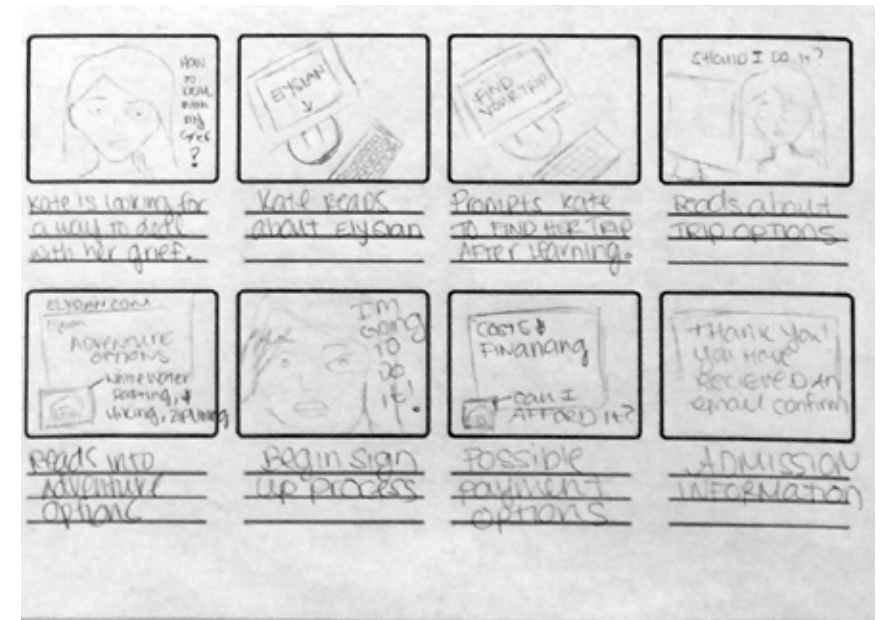 HOW
TO
DEAL
WITH
My
Grief
?
Kate is looking for
a way to deal
with her grief.
ELYSIAN
Kate Reads
about Elysian
FIND
YOUR TRIP
Prompts Kate
TO FIND HER TRIP
AFTER learning.
SHOULD I DO IT?
Reads about
TRIP OPTIONS
ELYSIAN.COM
ADVENTURE
OPTIONS
White Water
Rafting, &
Hiking, Ziplining
Reads into
Adventure
Options
I'M
GOING
TO
DO
it!
Begin sign
up process
COSTS &
FINANCING
CAN I
AFFORD It?
Possible
payment
options
THANK YOU!
YOU HAVE
RECIEVED AN
email confirm
ADMISSION
INFORMATION